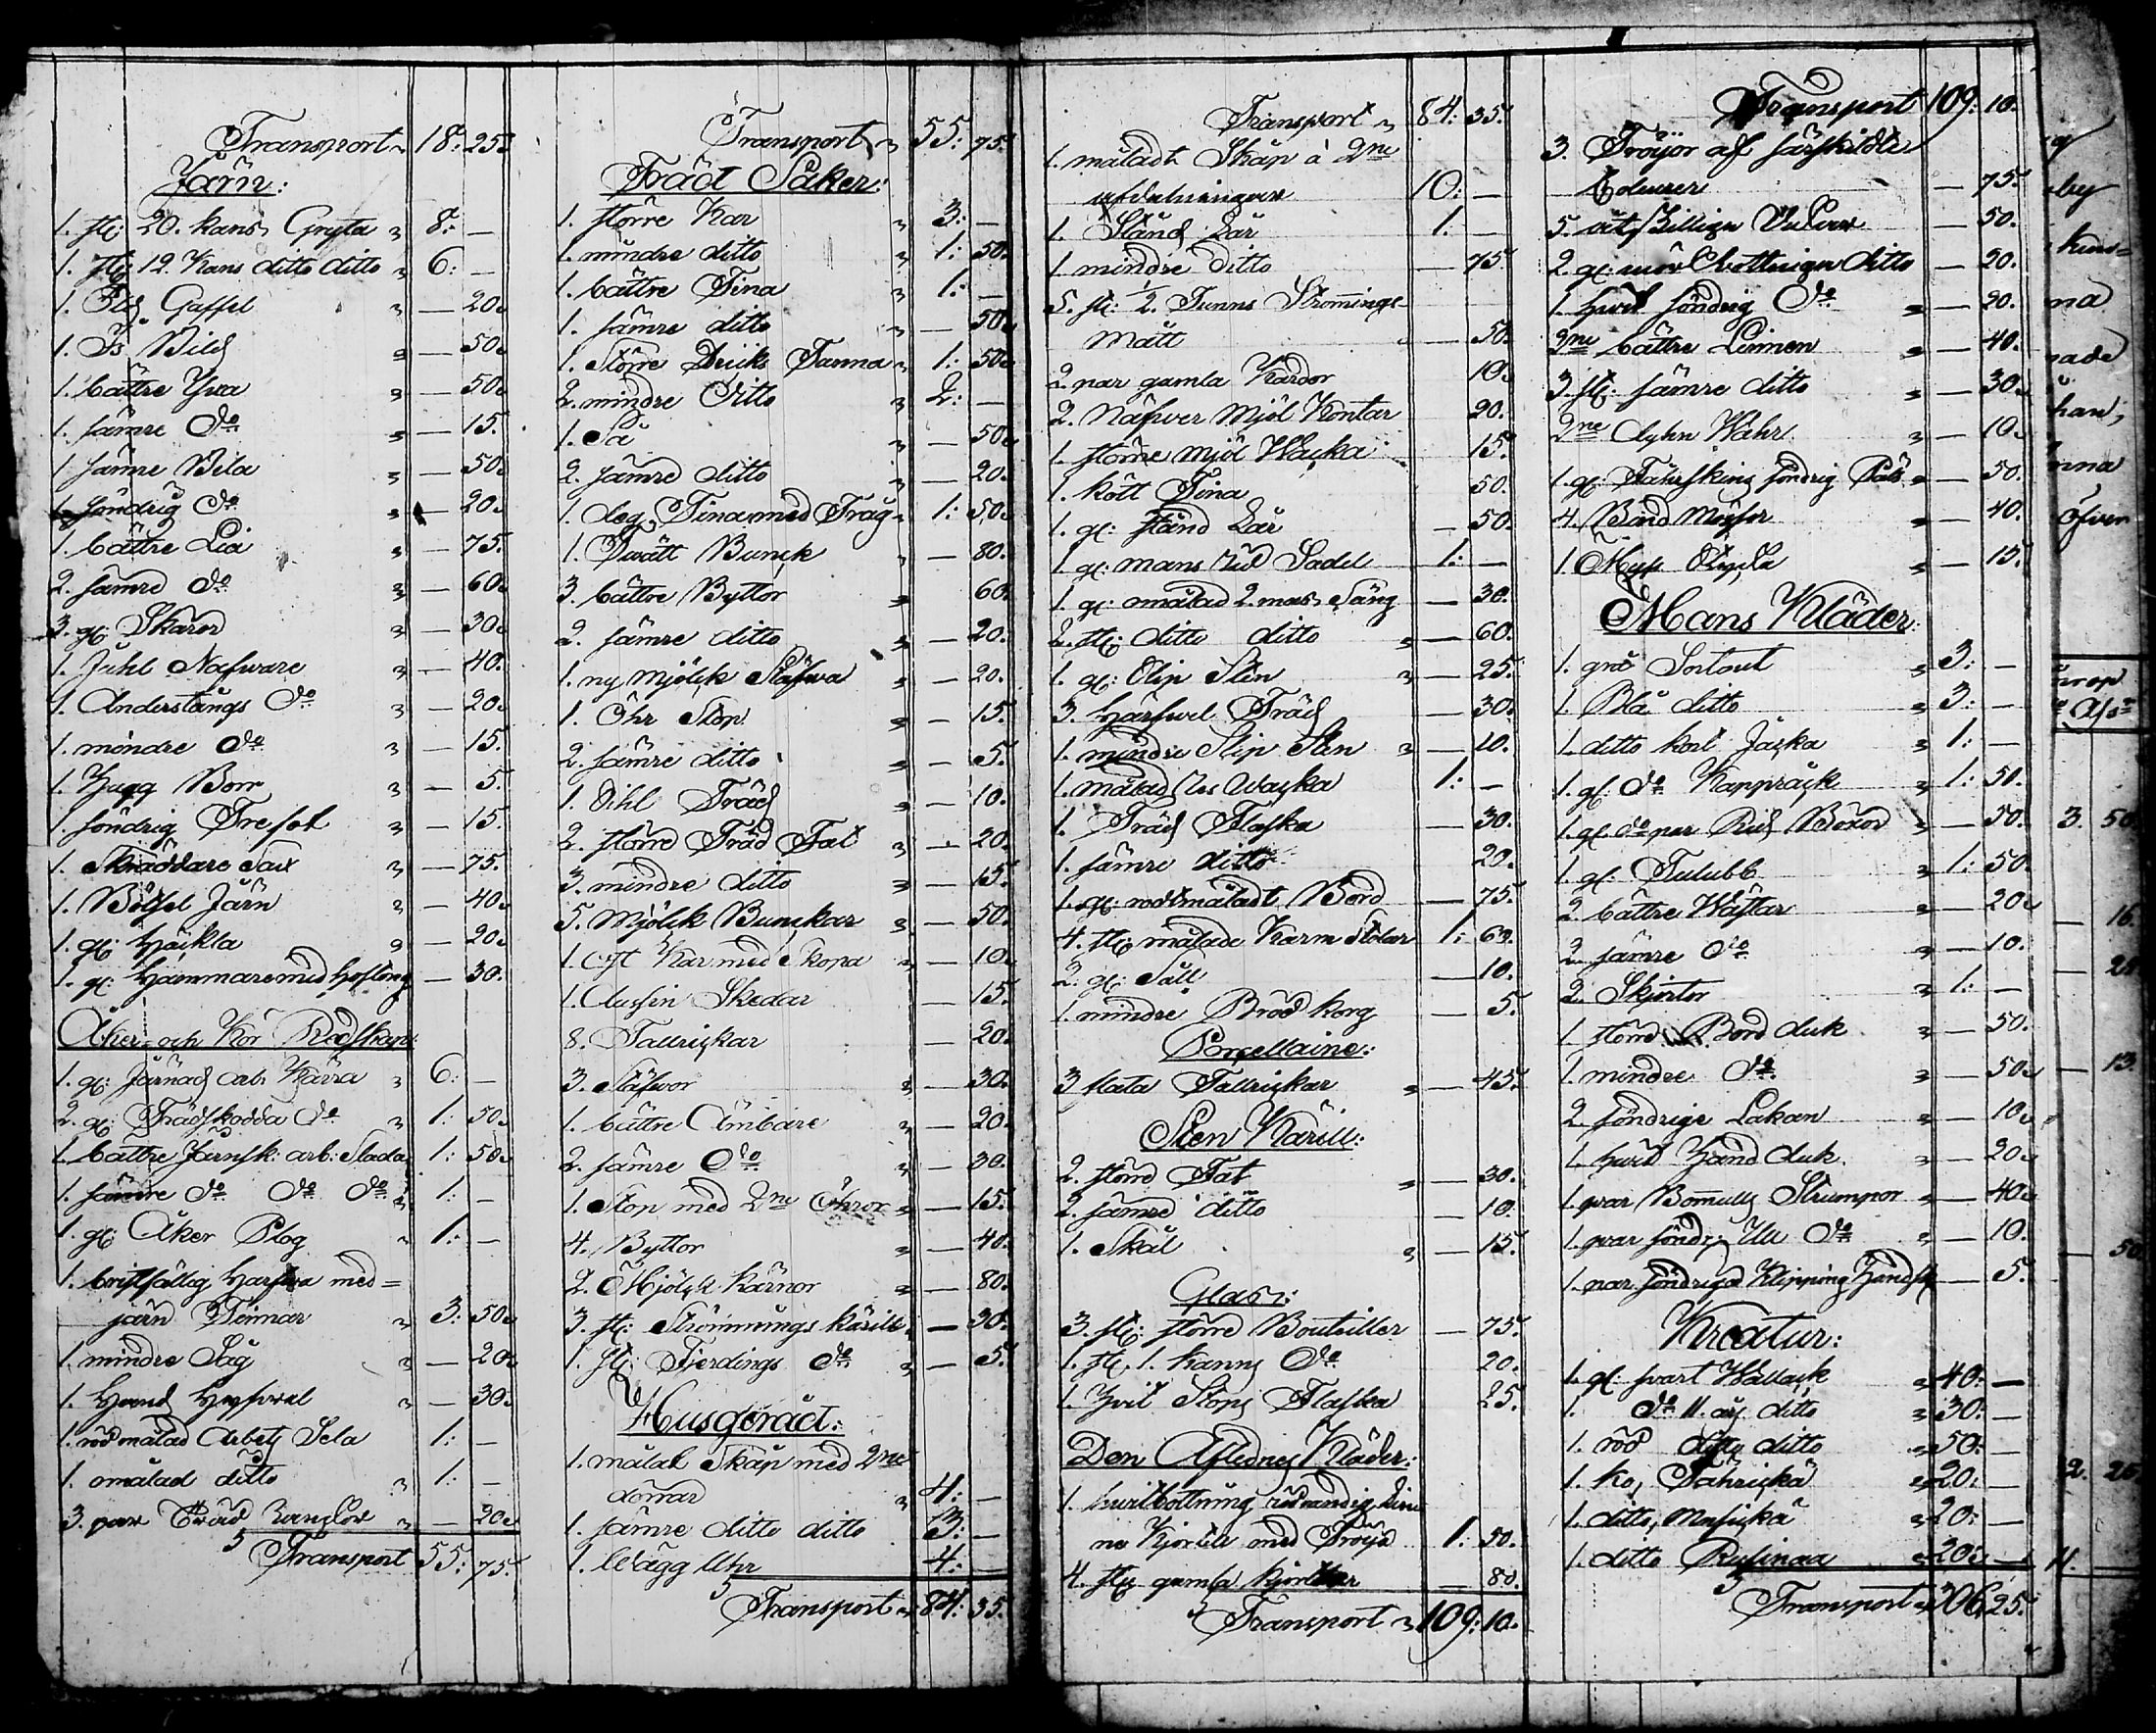 Transport 18: 25.
Järn:
1. st: 20. kans Gryta 8: —
1. st: 12. Kans ditto ditto 6: —
1. Gaffel — 20.
1. Is Bill — 50.
1. bättre Yxa — 50.
1. sämre do — 15.
1 sämre Bila — 50.
1. söndrig do — 20.
1. bättre Lia — 75.
2. sämre do — 60.
3. gl: Skäror — 30.
1. Juhl Nafware — 40.
1. Anderstångs do — 20.
1. mindre do — 15.
1. Hugg Borr — 5.
1. söndrig Trefot — 15.
1. Skräddare Sax — 75.
1. Järn — 40.
1. gl: Häckla — 20.
1. gl: Hammare med Hoftång — 30.
Åker- och Kör Redskap:
1. gl: Järnad arb: Kärra 6: —
2. gl: Trädskodda do 1: 50.
1. bättre Järnsk: arb: Slada 1: 50.
1. sämre do do do 1: —
1. gl: Åker Plog 1: —
1. bristfällig Harfwa med =
järn Pinnar 3: 50.
1. mindre Såg — 20.
1. Hand Hyfwel — 30.
1. röd målad Arbets Sela 1: —
1. omålad ditto 1: —
3. par Träd — 20.
Transport 55: 75.
Transport 55: 75.
Träd Saker:
1. större Kar 3: —
1. mindre ditto 1: 50.
1. bättre Tina 1: —
1. sämre ditto — 50.
1. Större Dricks Tunna 1: 50.
2. mindre Ditto 2: —
1. Så — 50.
2. sämre ditto — 20.
1. deg Tina med Tråg 1: 50.
1. Twätt Bunck — 80.
3. bättre Byttor 60.
2. sämre ditto — 20.
1. ny mjölck Stäfwa — 20.
1. Öhr Stop — 15.
2. sämre ditto — 5.
1. Träd — 10.
2. större Träd Fat — 20.
3. mindre ditto — 15.
5. Mjölck Bunckar — 50.
1. Kar med Skopa — 10.
1. dussin Skedar — 15.
8. Tallrickar — 20.
3. Stäfwor — 30.
1. bättre Ämbare — 20.
2. sämre do — 30.
1. Stop med 2ne Öhror — 15.
4. Byttor — 40.
2. Mjölck Kärnor — 80.
3. st: Strömmings kärill — 30.
1. st: Fjerdings do — 5.
Husgeråd:
1. målat Skåp med 2ne
dörrar 4: —
1. sämre ditto ditto 3: —
1. Wägg Uhr 4: —
Transport 84: 35.
Transport 84: 35.
1. måladt Skåp à 2ne
afdelningar 10: —
1. Stånd Lår 1: —
1. mindre ditto — 75.
5. st: 1/2 Tunns Strömings-
Mått — 50.
2. par gamla Kardor 10.
2. Näfwer Mjöl Kontar 20.
1. större mjöl Wacka 15.
1. kött Tina 50.
1. gl: stånd Lår — 50.
1. gl: mans rid Sadel 1: —
1. gl: omålad 2. mans Säng — 30.
2. st: ditto ditto — 60.
1. gl: Slip Sten — 25.
3. Härfwel Träd — 30.
1. mindre Slip Sten — 10.
1. målad Res Wacka 1: —
1. Träd Flaska — 30.
1. sämre ditto 20.
1. gl: rödmåladt Bord — 75.
4. st: målade Karm Stolar 1: 60.
2. gl: Såll — 10.
1. mindre Bröd korg — 5.
Porcellaine:
3 flata Tallrickar — 45.
Sten Kärill:
2. större Fat — 30.
2. sämre ditto — 10.
1. Skål — 15.
Glas:
3. st: större Bouteiller — 75.
1. st. 1. Kanns do 20.
1. Hvit Stops Flaska 25.
Den Aflednes Kläder:
1. hwitbottning rödrandig
Kjortel med Tröja 1: 50.
4. st: gamla kjortlar — 80.
Transport 109: 10.
Transport 109: 10.
3. Tröjor af särskildte
Coleurer — 75.
5. — 50.
2. gl: ditto — 20.
1. hwit söndrig do — 20.
2ne bättre Linnen — 40.
3. st: sämre ditto — 30.
2ne — 10.
1. gl: Fåhrskins söndrig Päls — 50.
4. Band Mössor — 40.
1. — 15.
Mans Kläder:
1. grå Sortout 3: —
1. Blå ditto 3: —
1. ditto kort Jacka 1: —
1. gl: do Kapprock 1: 50.
1. gl. do par Rid Böxor — 50.
1. gl: Tulubb 1: 50.
2. bättre Wästar — 20.
2. sämre do — 10.
2. Skjortor 1: —
1. större Bord duk — 50.
1. mindre do — 50.
2. söndriga Lakan — 10.
1. hwit Hand duk — 20.
1. par Bomulls Strumpor — 40.
1. par söndr: Ull do — 10.
1. par söndriga Klipping Handsk — 5.
Kreatur:
1. gl: swart Wallack 40: —
1. do 11. års ditto 30: —
1. röd ditto 50: —
1. Ko, 20: —
1. ditto, 20: —
1. ditto 20: —
Transport 306. 25.